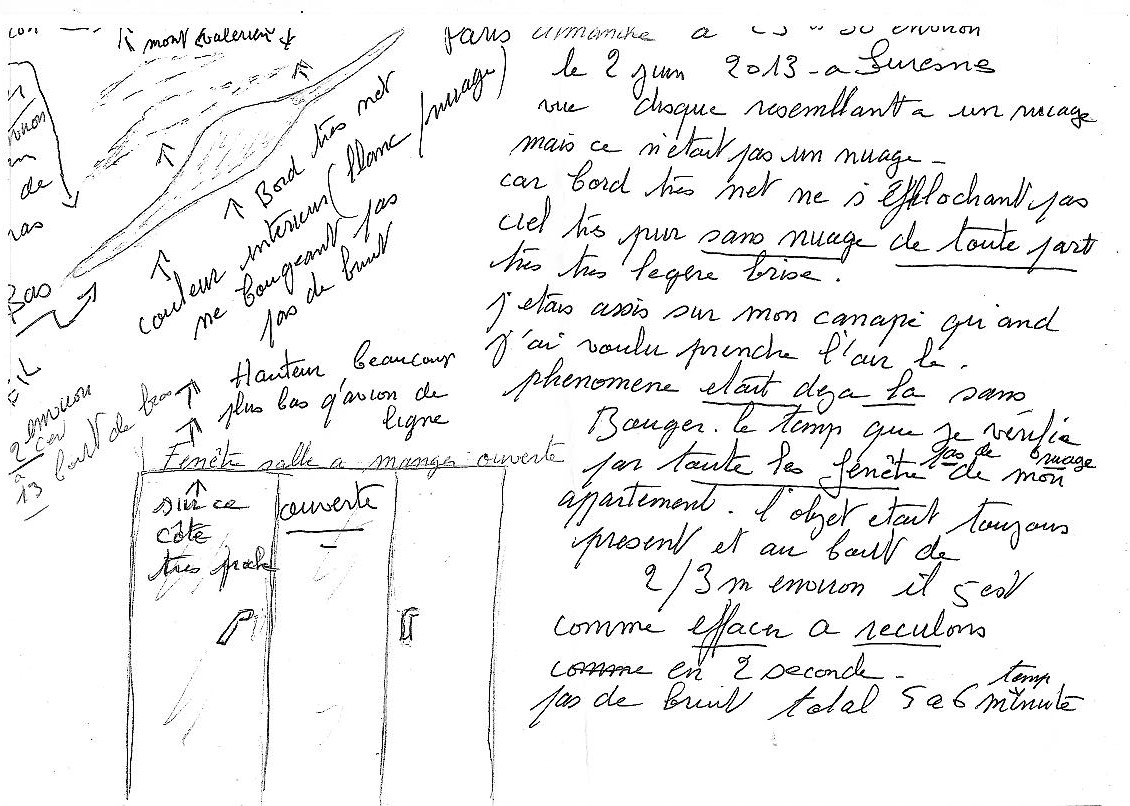 mont valerien
Paris dimanche a
le 2 juin 2013 - a Suresne
vue disque resemblant a un nuage
mais ce n'etait pas un nuage -
car bord très net ne s'éffilochant pas
ciel très pur sans nuage de toute part
très très legère brise.
j'etais assis sur mon canapé qu'and
j'ai voulu prendre l'air le.
phenomene etait deja la sans
Bouger. le temp que je vérifie
par toute les fenêtre pas de nuage de mon
appartement. l'objet etait toujours
present et au bout de
2/3 m environ il s'est
comme effacer a reculons
comme en 2 seconde -
pas de bruit total 5 a 6 minute
temp
Bord très net
couleur interieur (blanc/nuage)
ne bougeant pas
pas de bruit
de
Bas
Hauteur beaucoup
plus bas q'avion de
ligne
2 environ
13 bout de bras
Fenêtre salle a manger ouverte
sur ce
côte
très proche
ouverte